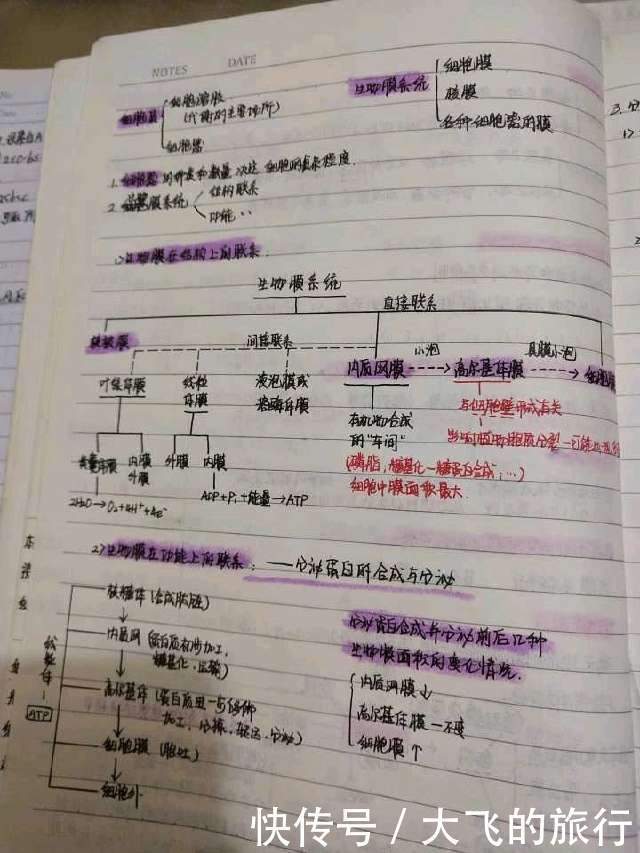 NOTES DATE
细胞溶胶
(代谢的主要场所)
细胞质
细胞器
生物膜系统
细胞膜
核膜
各种细胞器的膜
1. 细胞器的种类和数量决定细胞的复杂程度.
2. 生物膜系统
结构联系
功能 〃
1)生物膜在结构上的联系
生物膜系统
直接联系
核被膜
间接联系
内质网膜
小泡
高尔基体膜
具膜小泡
细胞膜
叶绿体膜
线粒体膜
液泡膜或
溶酶体膜
有机物合成
的"车间"
(磷脂, 糖基化—糖蛋白合成, …)
细胞中膜面积最大
与细胞壁形成有关
类囊体膜
内膜
外膜
外膜
内膜
2H₂O→O₂+4H⁺+4e⁻
ADP+Pi+能量→ATP
2)生物膜在功能上的联系:——分泌蛋白的合成与分泌
核糖体(合成肽链)
内质网(蛋白质初步加工,
糖基化, 运输)
高尔基体(蛋白质进一步修饰
加工, 分拣, 转运, 分泌)
细胞膜(胞吐)
细胞外
线粒体
ATP
分泌蛋白合成并分泌前后几种
生物膜面积的变化情况.
内质网膜↓
高尔基体膜—不变
细胞膜↑
快传号 / 大飞的旅行